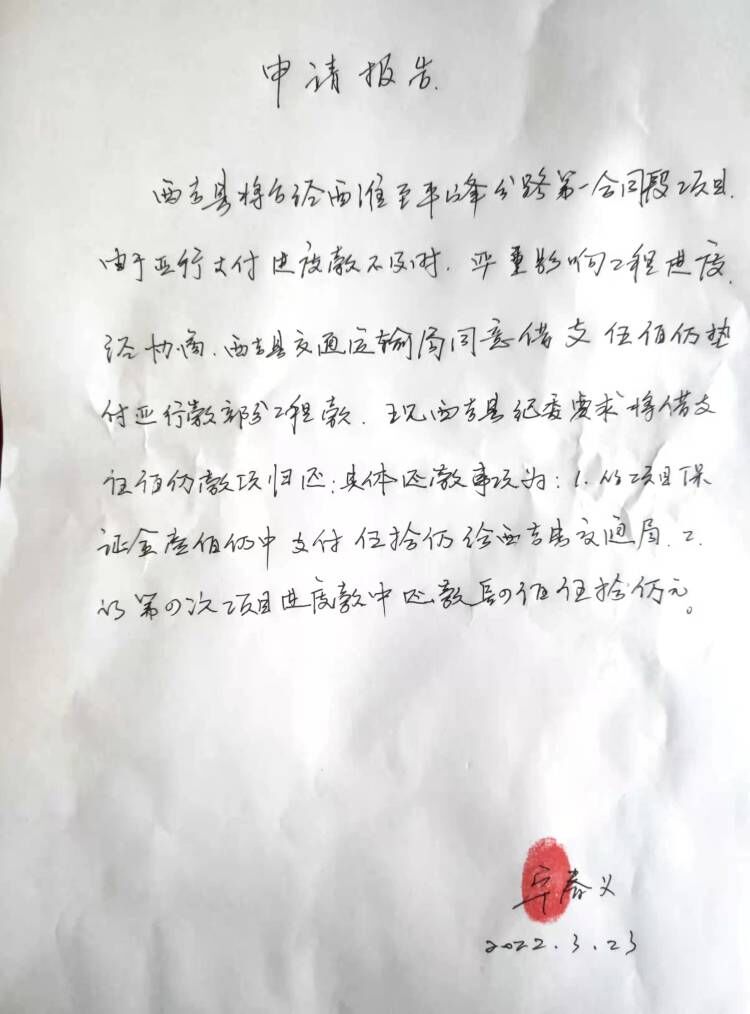 申请报告
西吉县将台经西滩至平峰公路第一合同段项目,
由于亚行支付进度款不及时,严重影响工程进度,
经协商,西吉县交通运输局同意借支伍佰万垫
付亚行款部分工程款。现西吉县纪委要求将借支
伍佰万款项归还;具体还款事项为:1.从项目保
证金壹佰万中支付伍拾万给西吉县交通局.2.
从第四次项目进度款中还款肆佰伍拾万元。
春义
2022.3.23